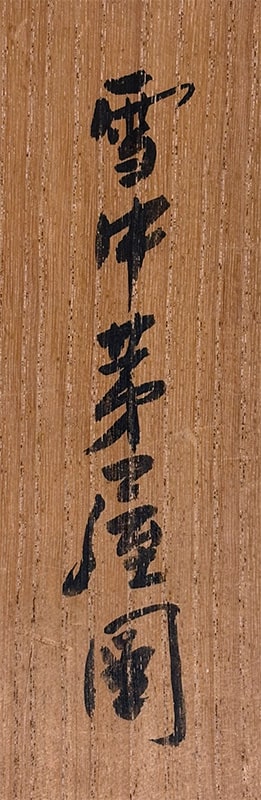 雪中茅屋圖